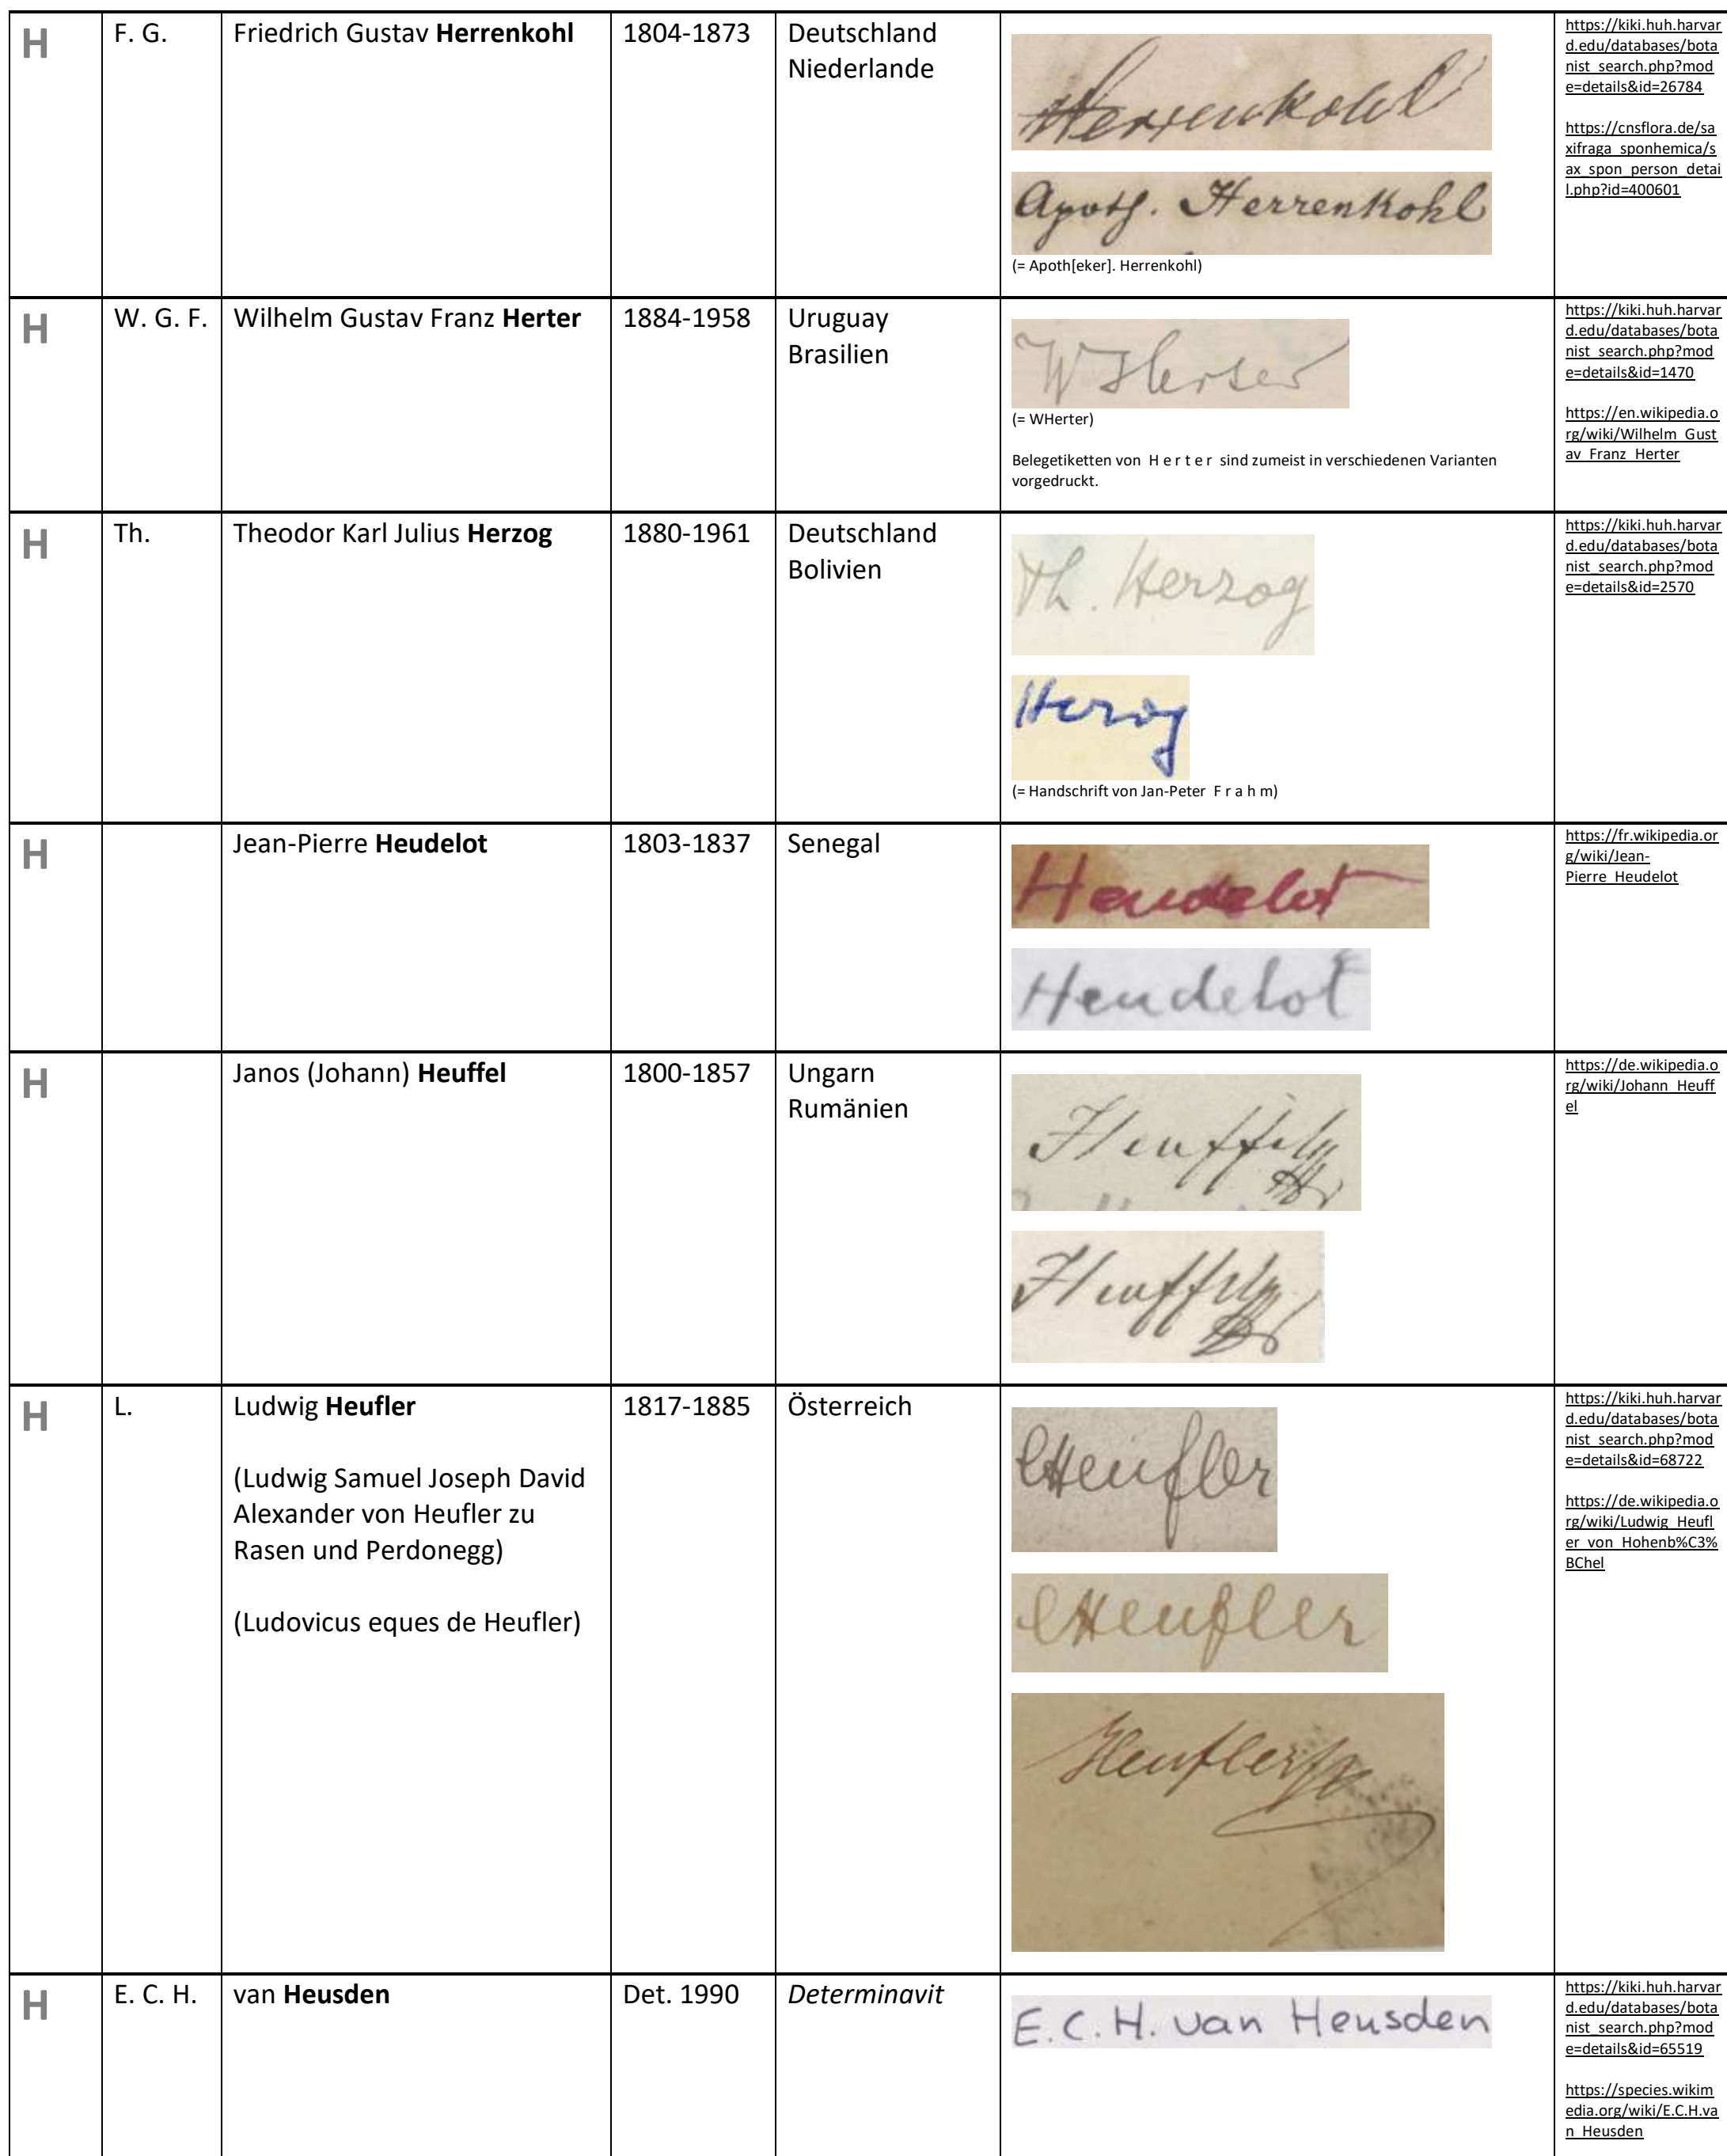 H
F. G.
Friedrich Gustav Herrenkohl
1804-1873
Deutschland
Niederlande
Herrenkohl
Apoth. Herrenkohl
(= Apoth[eker]. Herrenkohl)
https://kiki.huh.harvar
d.edu/databases/bota
nist_search.php?mod
e=details&id=26784
https://cnsflora.de/sa
xifraga_sponhemica/s
ax_spon_person_detai
l.php?id=400601
H
W. G. F.
Wilhelm Gustav Franz Herter
1884-1958
Uruguay
Brasilien
WHerter
(= WHerter)
Belegetiketten von H e r t e r sind zumeist in verschiedenen Varianten
vorgedruckt.
https://kiki.huh.harvar
d.edu/databases/bota
nist_search.php?mod
e=details&id=1470
https://en.wikipedia.o
rg/wiki/Wilhelm_Gust
av_Franz_Herter
H
Th.
Theodor Karl Julius Herzog
1880-1961
Deutschland
Bolivien
Th. Herzog
Herzog
(= Handschrift von Jan-Peter F r a h m)
https://kiki.huh.harvar
d.edu/databases/bota
nist_search.php?mod
e=details&id=2570
H
Jean-Pierre Heudelot
1803-1837
Senegal
Heudelot
Heudelot
https://fr.wikipedia.or
g/wiki/Jean-
Pierre_Heudelot
H
Janos (Johann) Heuffel
1800-1857
Ungarn
Rumänien
Heuffel
Heuffel
https://de.wikipedia.o
rg/wiki/Johann_Heuff
el
H
L.
Ludwig Heufler
(Ludwig Samuel Joseph David
Alexander von Heufler zu
Rasen und Perdonegg)
(Ludovicus eques de Heufler)
1817-1885
Österreich
LHeufler
LHeufler
Heufler
https://kiki.huh.harvar
d.edu/databases/bota
nist_search.php?mod
e=details&id=68722
https://de.wikipedia.o
rg/wiki/Ludwig_Heufl
er_von_Hohenb%C3%
BChel
H
E. C. H.
van Heusden
Det. 1990
Determinavit
E.C.H. van Heusden
https://kiki.huh.harvar
d.edu/databases/bota
nist_search.php?mod
e=details&id=65519
https://species.wikim
edia.org/wiki/E.C.H.va
n_Heusden